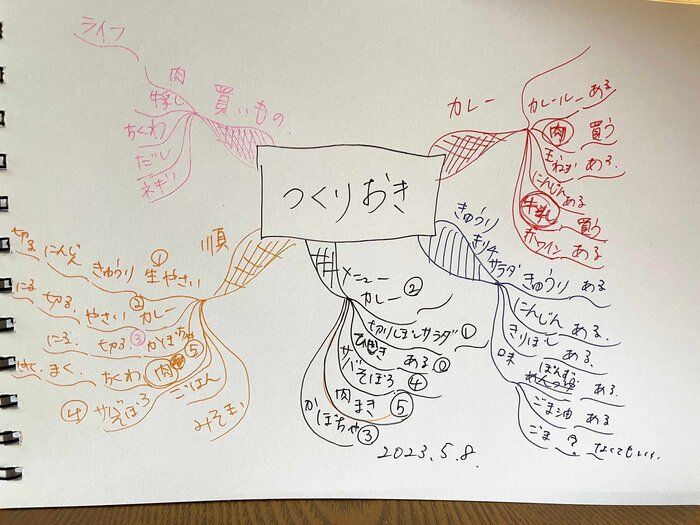 つくりおき
カレー
カレールー ある
肉 買う
玉ねぎ ある.
にんじん ある
牛乳 買う
赤ワイン ある
きゅうり
サラダ
きゅうり ある
にんじん ある.
きりぼし ある.
味 ぽんず ある
ごま油 ある
ごま ? なくてもいい.
メニュー
カレー ②
切りぼしサラダ ①
ある ⓪
サバそぼろ ④
肉まき ⑤
かぼちゃ ③
2023.5.8.
順
① 生やさい きゅうり にんじん 切る
カレー ② やさい 切る にる
かぼちゃ ③ 切る にる
⑤ 肉 ちくわ まく
サバそぼろ ④
ごはん
みそ玉
買いもの
ライフ
肉
牛乳
ちくわ
だし
ネギ